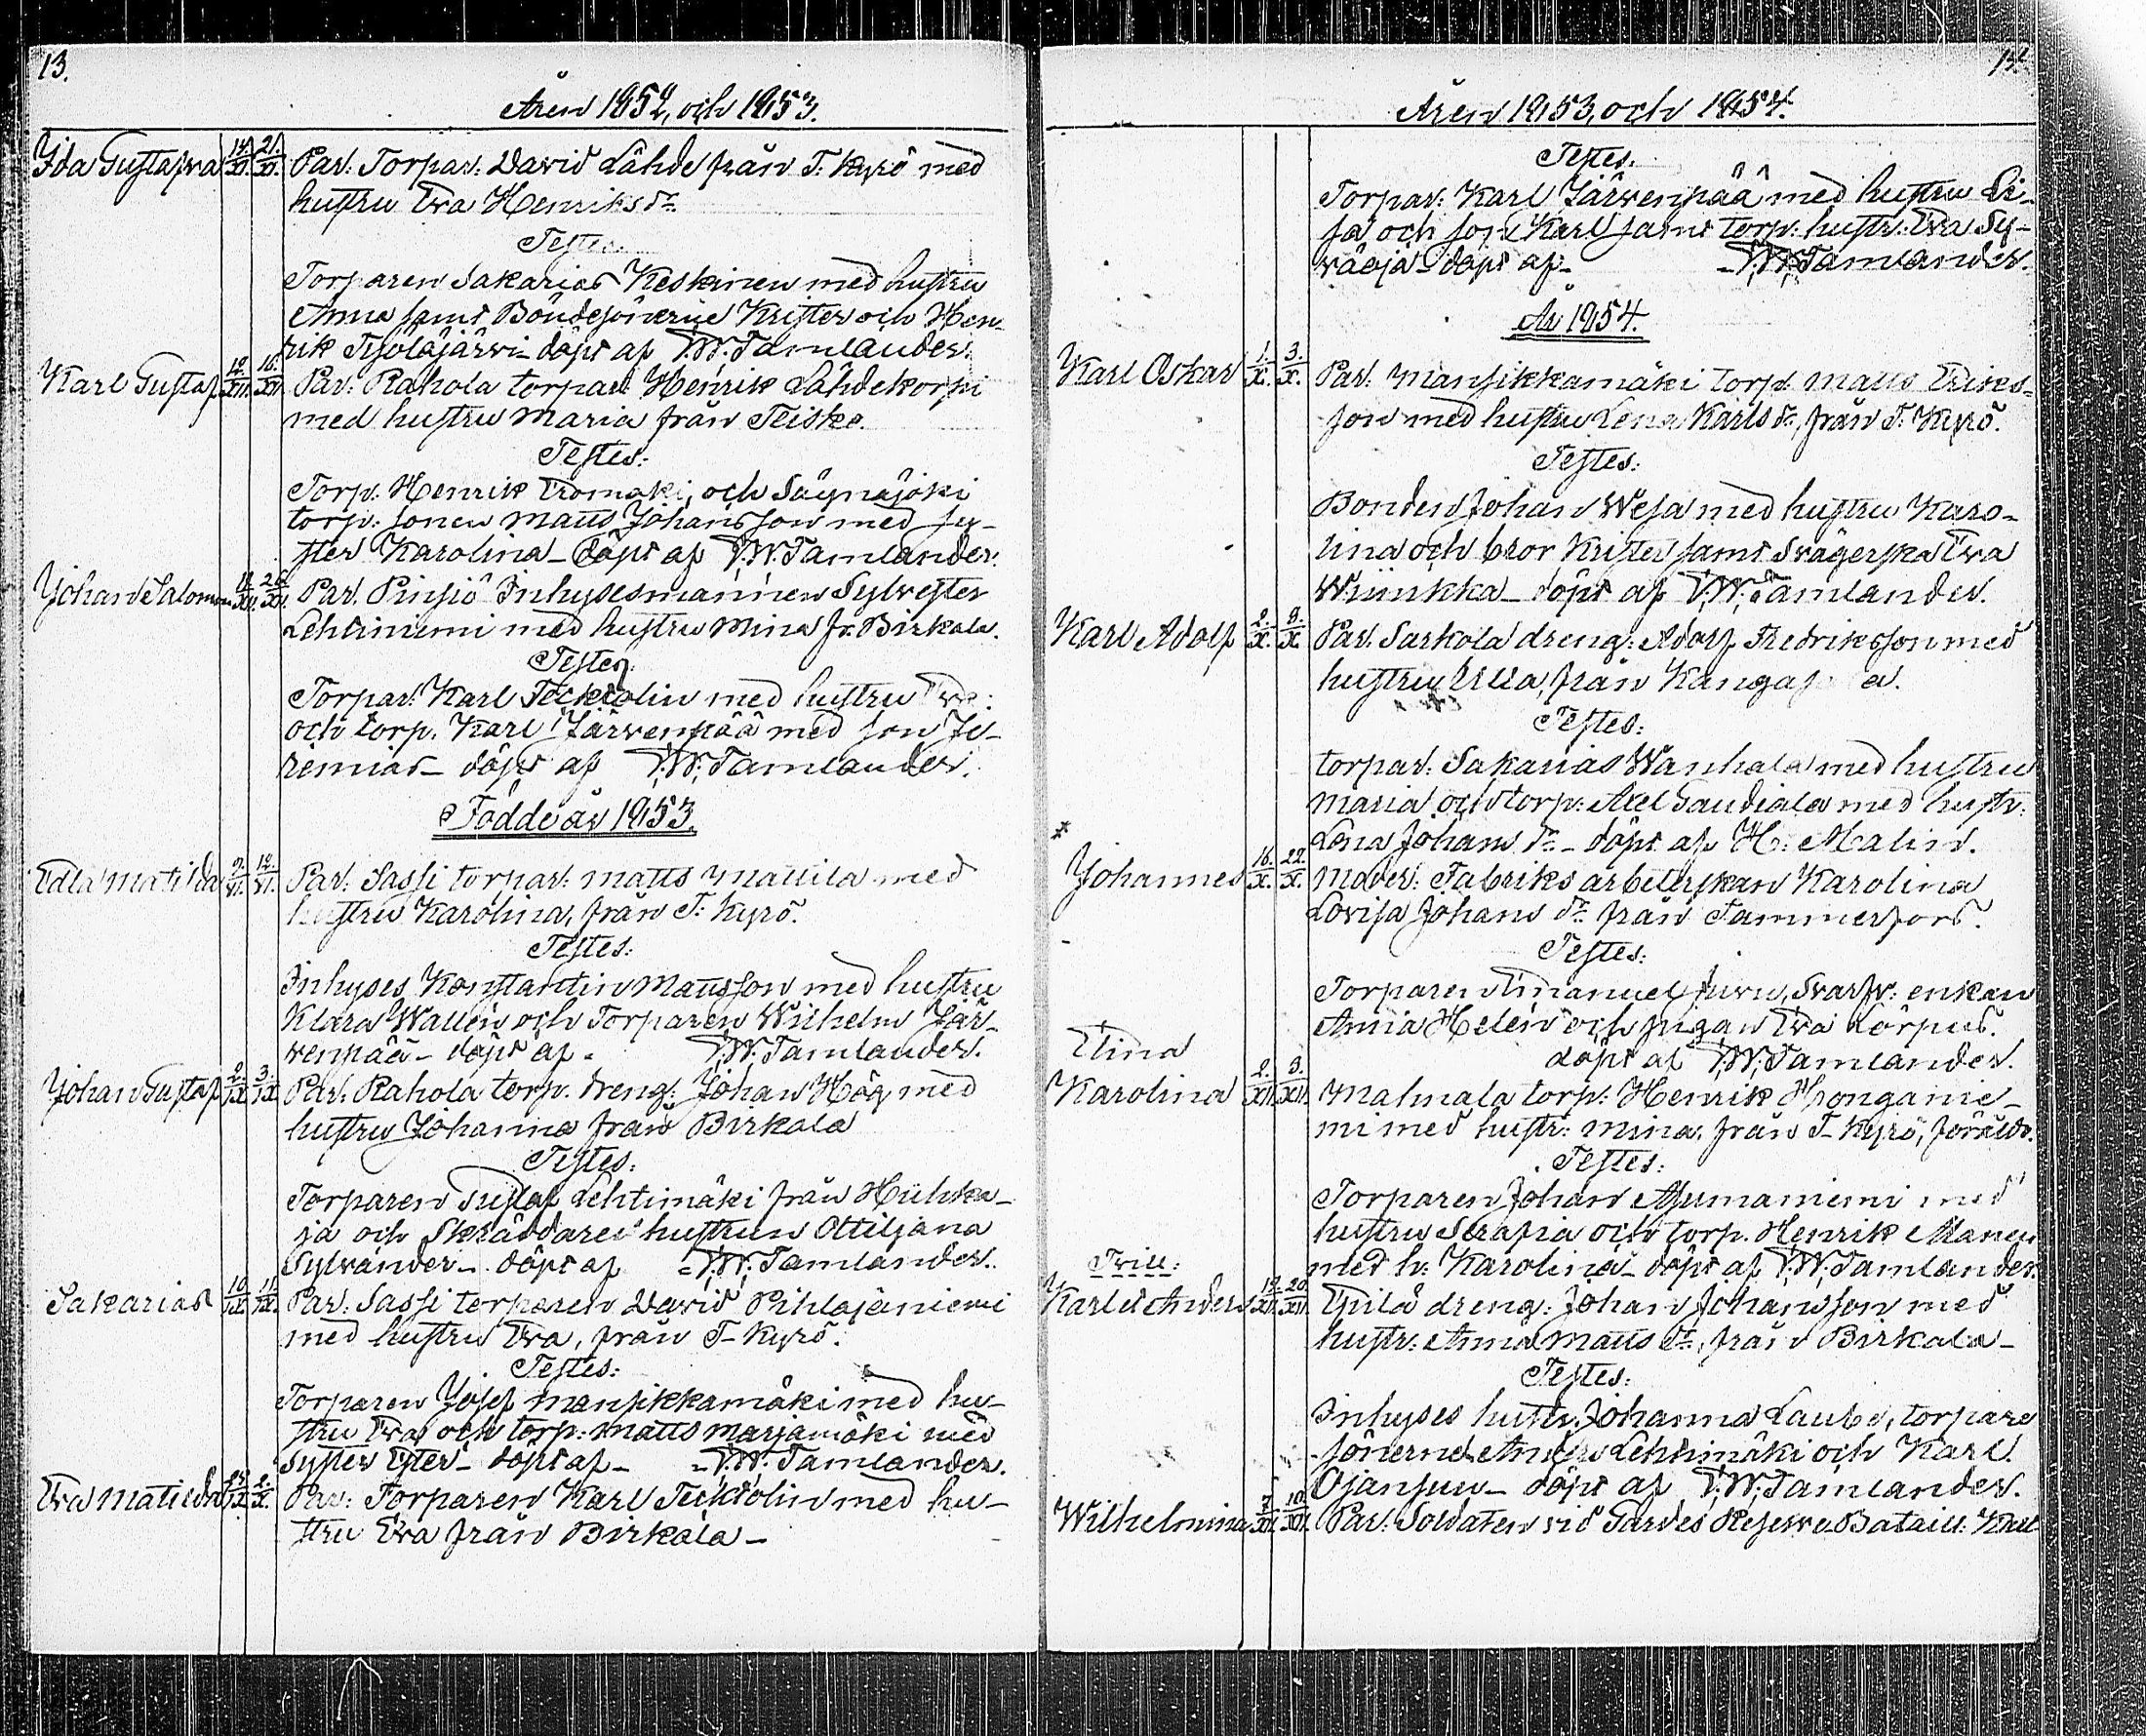 13.
Åren 1852, och 1853.
Ida Gustafva 14/XI. 21./XI. Par: Torpar: David Lähde från T: Kyrö med
hustru Eva Henriks dr.
Testes:
Torparen Sakarias Keskinen med hustru
Anna samt Bondesönerne Krister och Hen-
rik döpt af T.W. Tamlander.
Karl Gustaf 12./XII. 16./XII. Par: Rahola torpare Henrik Lähdekorpi
med hustru Maria från Teisko.
Testes:
Torp: Henrik och
torp: sonen Matts Johansson med sy-
ster Karolina – döpt af T.W. Tamlander.
Johan Salomon 26/XII. Par. Pinsiö Inhysesmannen Sylvester
Lehtiniemi med hustru Mina fr. Birkala.
Testes:
Torpar: Karl Tecktolin med hustru Eva:
och torp. Karl Järvenpää med son Je-
remias – döpt af T.W. Tamlander.
Födde år 1853.
Edla Matilda 9./VI. 12./VI. Par: Sassi torpar: Matts Mattila med
hustru Karolina, från T: Kyrö.
Testes:
Inhyses Konstantin Mattsson med hustru
Klara Wallen och Torparen Wilhelm Jär-
venpää – döpt af – T.W. Tamlander.
Johan Gustaf 2./IX 3./IX Par: Rahola torp. dreng: Johan Hög med
hustru Johanna från Birkala
Testes:
Torparen Gustaf Lehtimäki från Huhka-
ja och Skräddare hustrun Ottiljana
Sylvander – döpt af – T.W. Tamlander.
Sakarias 10/IX. 11./IX. Par: Sassi torparen David Pihlajaniemi
med hustru Eva, från T- Kyrö.
Testes:
Torparen Josef Mansikkamäki med hu-
stru Eva och torp: Matts Marjamäki med
syster Ester – döpt af – – T.W. Tamlander.
Eva Matilda 2./X. Par: Torparen Karl Tecktolin med hu-
stru Eva från Birkala –
14.
Åren 1853, och 1854.
Testes.
Torpar: Karl Järvenpää med hustru Li-
sa och son Karl samt torp: hustr: Eva Sy-
väoja – döpt af – – T.W. Tamlander.
År 1854.
Karl Oskar 1./X. 3./X. Par: Mansikkamäki torp: Matts Eriks-
son med hustru Lena Karls dr, från T: Kyrö.
Testes:
Bonden Johan Wesa med hustru Karo-
lina och bror Krister samt Svägerska Eva
Wiinikka – döpt af T.W. Tamlander.
Karl Adolf 2./X. 8./X. Par: Sarkola dreng: Adolf Fredriksson med
hustru Ulla, från
Testes:
torpar: Sakarias Wanhala med hustru
Maria och torp: Axel med hustr:
Lena Johans dr – döpt af H: Malin.
Johannes 16./X. 22./X. Moder: Fabriksarbeterskan Karolina
Lovisa Johans dr från Tammerfors.
Testes:
Torparen Emanuel enkan
Anna Helen och pigan Eva Törpus.
döpt af T.W. Tamlander.
Elina
Karolina 2./XII. 3./XII. Mahnala torp: Henrik Honganie-
mi med hustr: Mina, från T- Kyrö, föräldr.
Testes:
Torparen Johan Asumaniemi med
hustru Serafia och torp. Henrik Manen
med h: Karolina – döpt af T.W. Tamlander.
Tvill:
Karl & Anders 20/XII. Epilä dreng: Johan Johansson med
hustr: Anna Matts dr, från Birkala –
Testes:
Inhyses hustr. Johanna torpare
sönerne Anders Lehtimäki och Karl
Ojansuu – döpt af T.W. Tamlander.
Wilhelmina 7./XII. 10/XII. Par: Soldaten vid Gardes Reserve Bataill: Karl